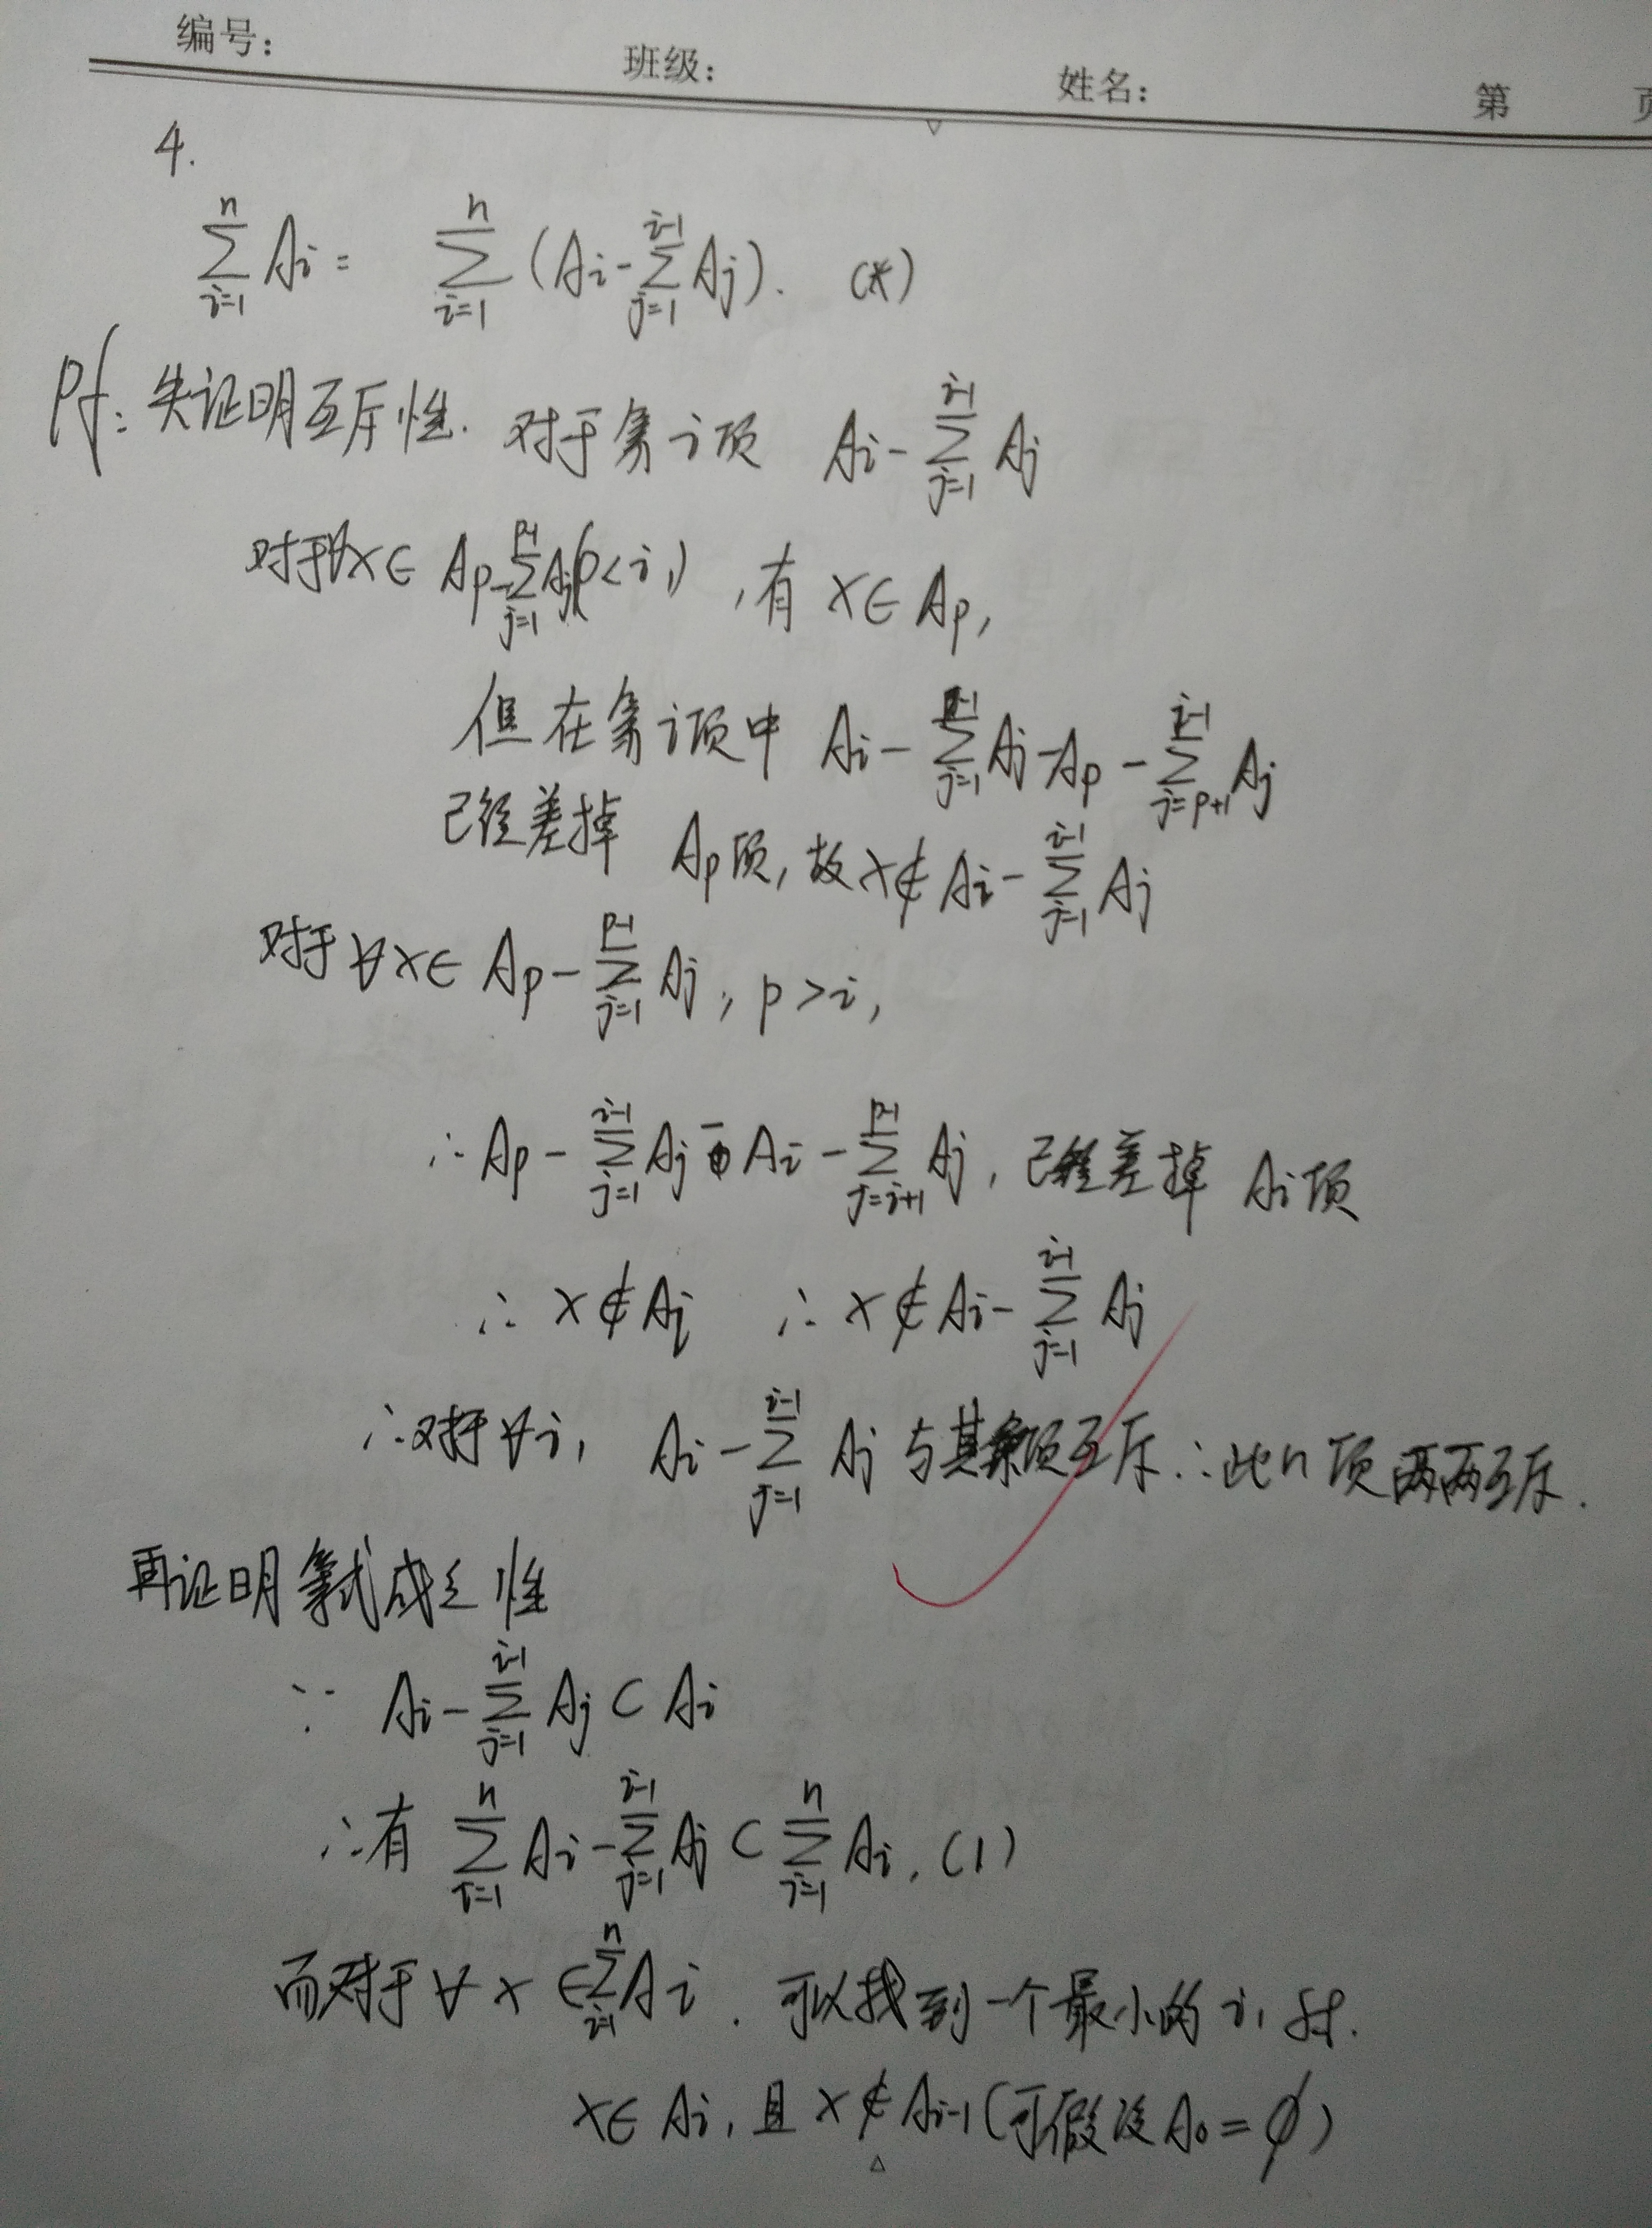 编号： 班级： 姓名： 第 页
4.
∑_{i=1}^{n} Ai = ∑_{i=1}^{n} (Ai - ∑_{j=1}^{i-1} Aj). (*)
Pf: 先证明互斥性. 对于第 i 项 Ai - ∑_{j=1}^{i-1} Aj
对于∀x∈ Ap - ∑_{j=1}^{p-1} Aj (p<i) , 有 x∈ Ap,
但在第 i 项中 Ai - ∑_{j=1}^{p-1} Aj - Ap - ∑_{j=p+1}^{i-1} Aj
已经差掉 Ap项, 故 x∉ Ai - ∑_{j=1}^{i-1} Aj
对于 ∀x∈ Ap - ∑_{j=1}^{p-1} Aj, p>i,
∴ Ap - ∑_{j=1}^{i-1} Aj - Ai - ∑_{j=i+1}^{p-1} Aj, 已经差掉 Ai项
∴ x∉Ai ∴ x∉Ai - ∑_{j=1}^{i-1} Aj
∴对于∀i, Ai - ∑_{j=1}^{i-1} Aj 与其余项互斥 ∴此n项两两互斥.
再证明等式成立性
∵ Ai - ∑_{j=1}^{i-1} Aj ⊂ Ai
∴有 ∑_{i=1}^{n} Ai - ∑_{j=1}^{i-1} Aj ⊂ ∑_{i=1}^{n} Ai. (1)
而对于∀x ∈ ∑_{i=1}^{n} Ai. 可以找到一个最小的 i, st.
x∈ Ai, 且 x∉Ai-1 (可假设A0=∅)